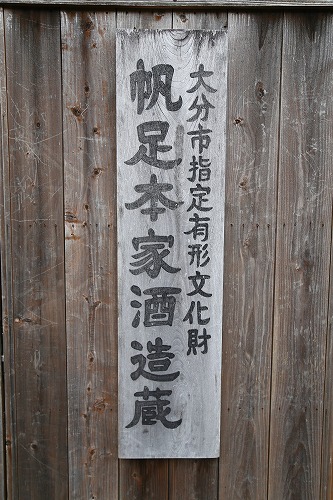 大分市指定有形文化財
帆足本家酒造蔵